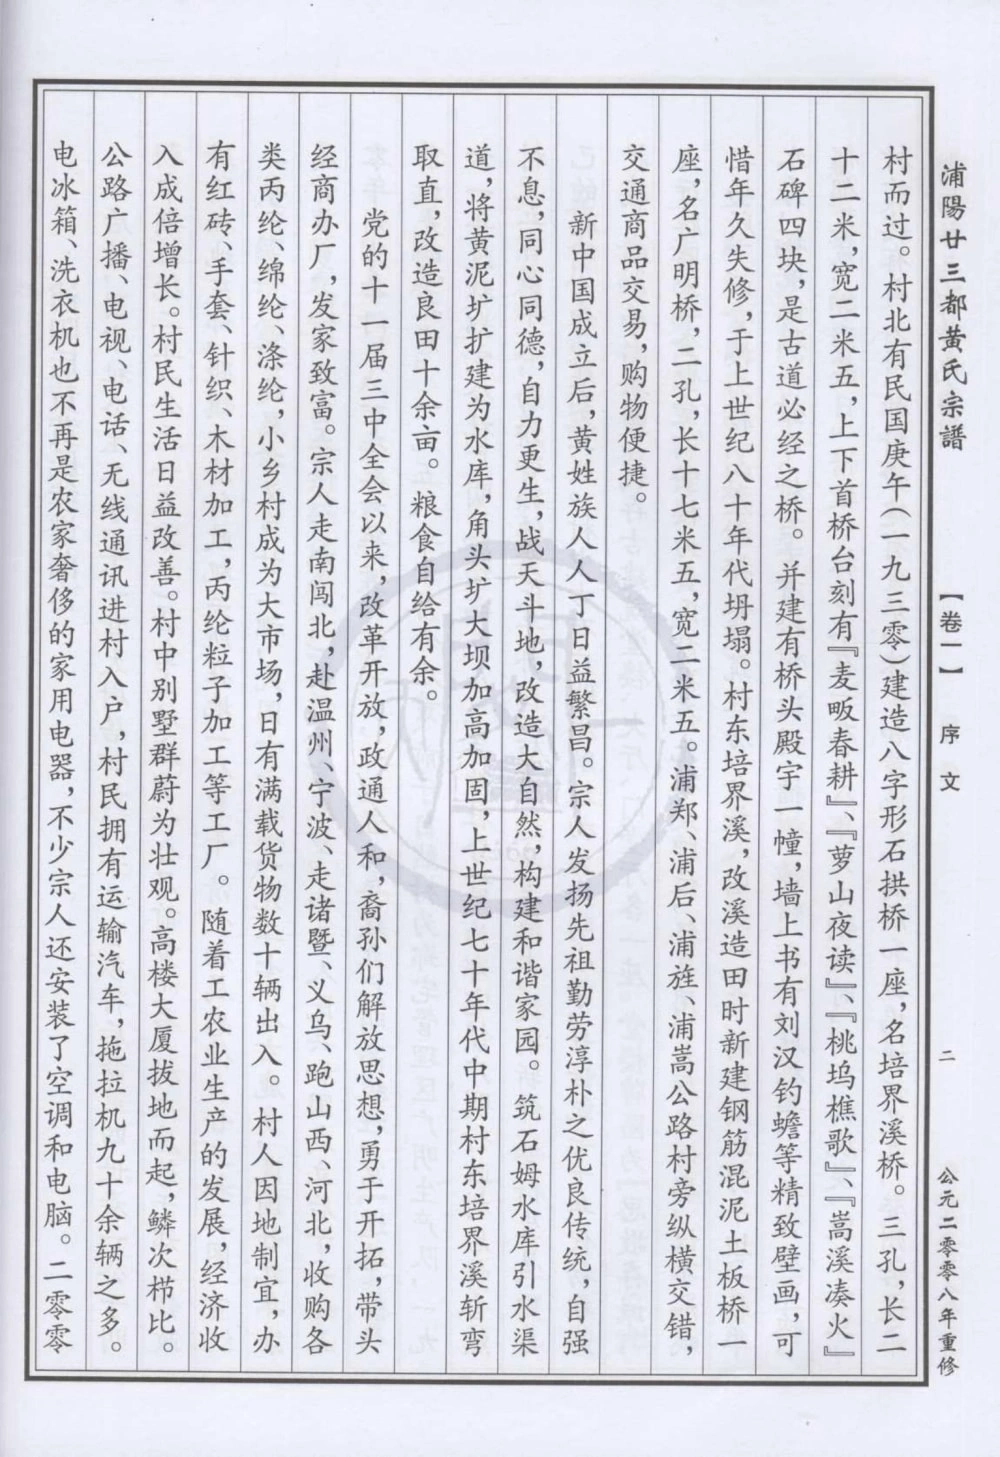 浦陽廿三都黄氏宗譜 【卷一】 序文 二 公元二零零八年重修
村而过。村北有民国庚午(一九三零)建造八字形石拱桥一座,名培界溪桥。三孔,长二
十二米,宽二米五,上下首桥台刻有『麦畈春耕』、『萝山夜读』、『桃坞樵歌』、『嵩溪凑火』
石碑四块,是古道必经之桥。并建有桥头殿宇一幢,墙上书有刘汉钓蟾等精致壁画,可
惜年久失修,于上世纪八十年代坍塌。村东培界溪,改溪造田时新建钢筋混泥土板桥一
座,名广明桥,二孔,长十七米五,宽二米五。浦郑、浦后、浦旌、浦嵩公路村旁纵横交错,
交通商品交易,购物便捷。
新中国成立后,黄姓族人人丁日益繁昌。宗人发扬先祖勤劳淳朴之优良传统,自强
不息,同心同德,自力更生,战天斗地,改造大自然,构建和谐家园。筑石姆水库引水渠
道,将黄泥圹扩建为水库,角头圹大坝加高加固,上世纪七十年代中期村东培界溪斩弯
取直,改造良田十余亩。粮食自给有余。
党的十一届三中全会以来,改革开放,政通人和,裔孙们解放思想,勇于开拓,带头
经商办厂,发家致富。宗人走南闯北,赴温州、宁波、走诸暨、义乌、跑山西、河北,收购各
类丙纶、绵纶、涤纶,小乡村成为大市场,日有满载货物数十辆出入。村人因地制宜,办
有红砖、手套、针织、木材加工,丙纶粒子加工等工厂。随着工农业生产的发展,经济收
入成倍增长。村民生活日益改善。村中别墅群蔚为壮观。高楼大厦拔地而起,鳞次栉比。
公路广播、电视、电话、无线通讯进村入户,村民拥有运输汽车,拖拉机九十余辆之多。
电冰箱、洗衣机也不再是农家奢侈的家用电器,不少宗人还安装了空调和电脑。二零零